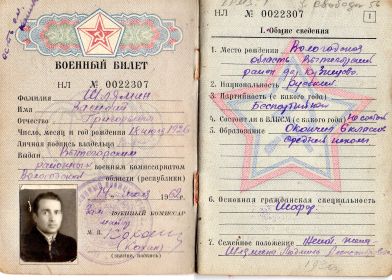 ВОЕННЫЙ БИЛЕТ
НЛ № 0022307
Фамилия
Имя
Отчество Григорьевич
Число, месяц и год рождения 18 июля 1926
Личная подпись владельца
Выдан Вытегорским
районным военным комиссариатом
Вологодской области (республики)
1962 г.
Зам. ВОЕННЫЙ КОМИССАР
майор
М. П.
(Кокин)
(звание, подпись)
НЛ № 0022307
1
I. Общие сведения
1. Место рождения Вологодская
область Вытегорский
район дер.
2. Национальность Русский
3. Партийность (с какого года)
Беспартийный
4. Состоит ли в ВЛКСМ (с какого года) не состоит
5. Образование Окончил 6 классов
средней школы
6. Основная гражданская специальность
Шофер
7. Семейное положение Женат, жена